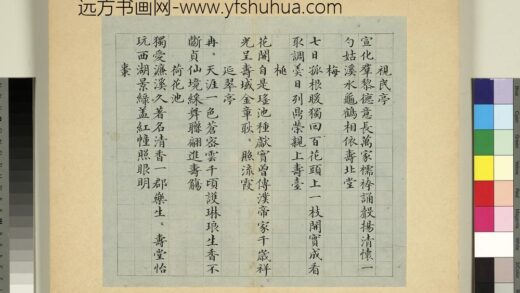 远方书画网-www.yfshuhua.com
視民亭
宣化羣黎德意長萬家襦袴誦敭揚清懷一
勺姑溪水龜鶴相依壽北堂
梅
七日孤根暖獨回百花頭上一枝開實成看
取調羹日列鼎榮親上壽臺
桃
花開自是瑶池種獻實曾傳漢帝家千歲祥
光呈壽域金章耿照流霞
延翠亭
冉天涯一色蒼容雲千頃護琳琅生香不
斷貞仙境綵舞聯翩進壽觴
荷花池
獨愛濂溪久著名清香一郡樂生壽堂怡
玩西湖景綠蓋紅幢照眼明
棗